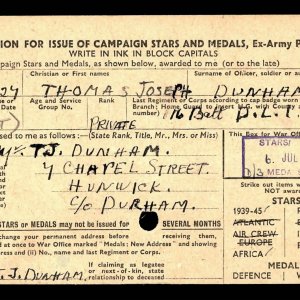 ION FOR ISSUE OF CAMPAIGN STARS AND MEDALS, Ex-Army P
WRITE IN INK IN BLOCK CAPITALS
paign Stars and Medals, as shown below, awarded to me (or to the late)
Christian or First names
Surname of Officer, soldier or au
27 THOMAS JOSEPH DUNHAM
Age and Service Group No.
Rank
Last Regiment or Corps according to cap badge worn
(Home Guard to insert U.K. and
16 Batt D.L.I
PRIVATE
ssed to me as follows:—
(State Rank, Title, Mr., Mrs. or Miss)
This Box for War Office
MR. T.J. DUNHAM.
STARS/
7 CHAPEL STREET.
6. JUL
HUNWICK.
D/3 MEDA
C/O DURHAM.
Strike out items
NOT
STARS or MEDALS may not be issued for SEVERAL MONTHS
STARS
change your permanent address before receiving them,
1939-45
once at to War Office marked "Medals: New Address" showing
ress and (ii) name, last Regiment or Corps.
ATLANTIC
AIR CREW
EUROPE
AFRICA/
If claiming as legatee
or next-of-kin, state
relationship to deceased
T.J. DUNHAM
MEDAL
DEFENCE
W